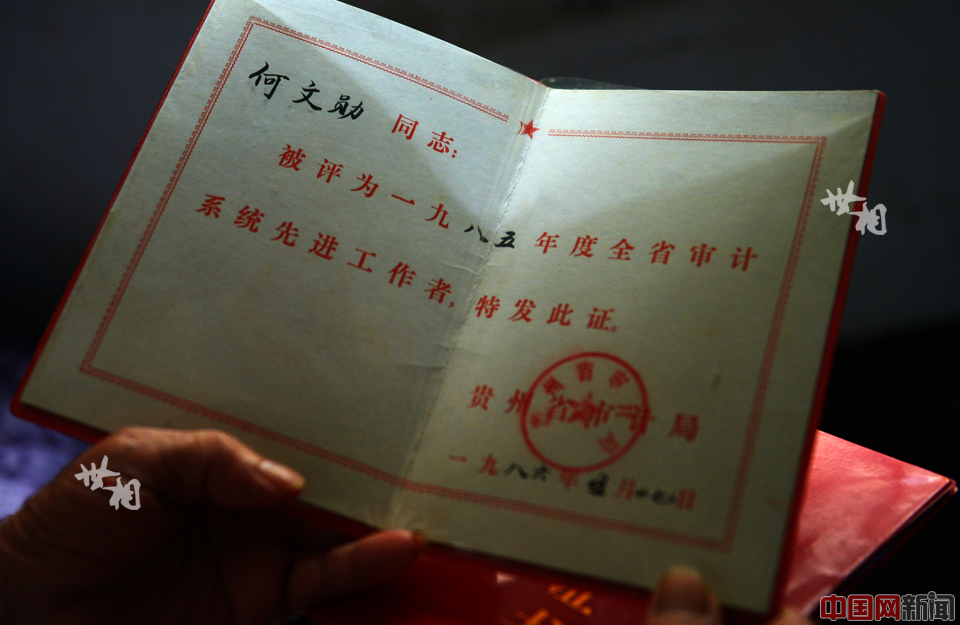 何文勋 同志：
被评为一九八五年度全省审计
系统先进工作者，特发此证。
贵州省审计局
一九八六年 月 日
世相
世相
中国网新闻